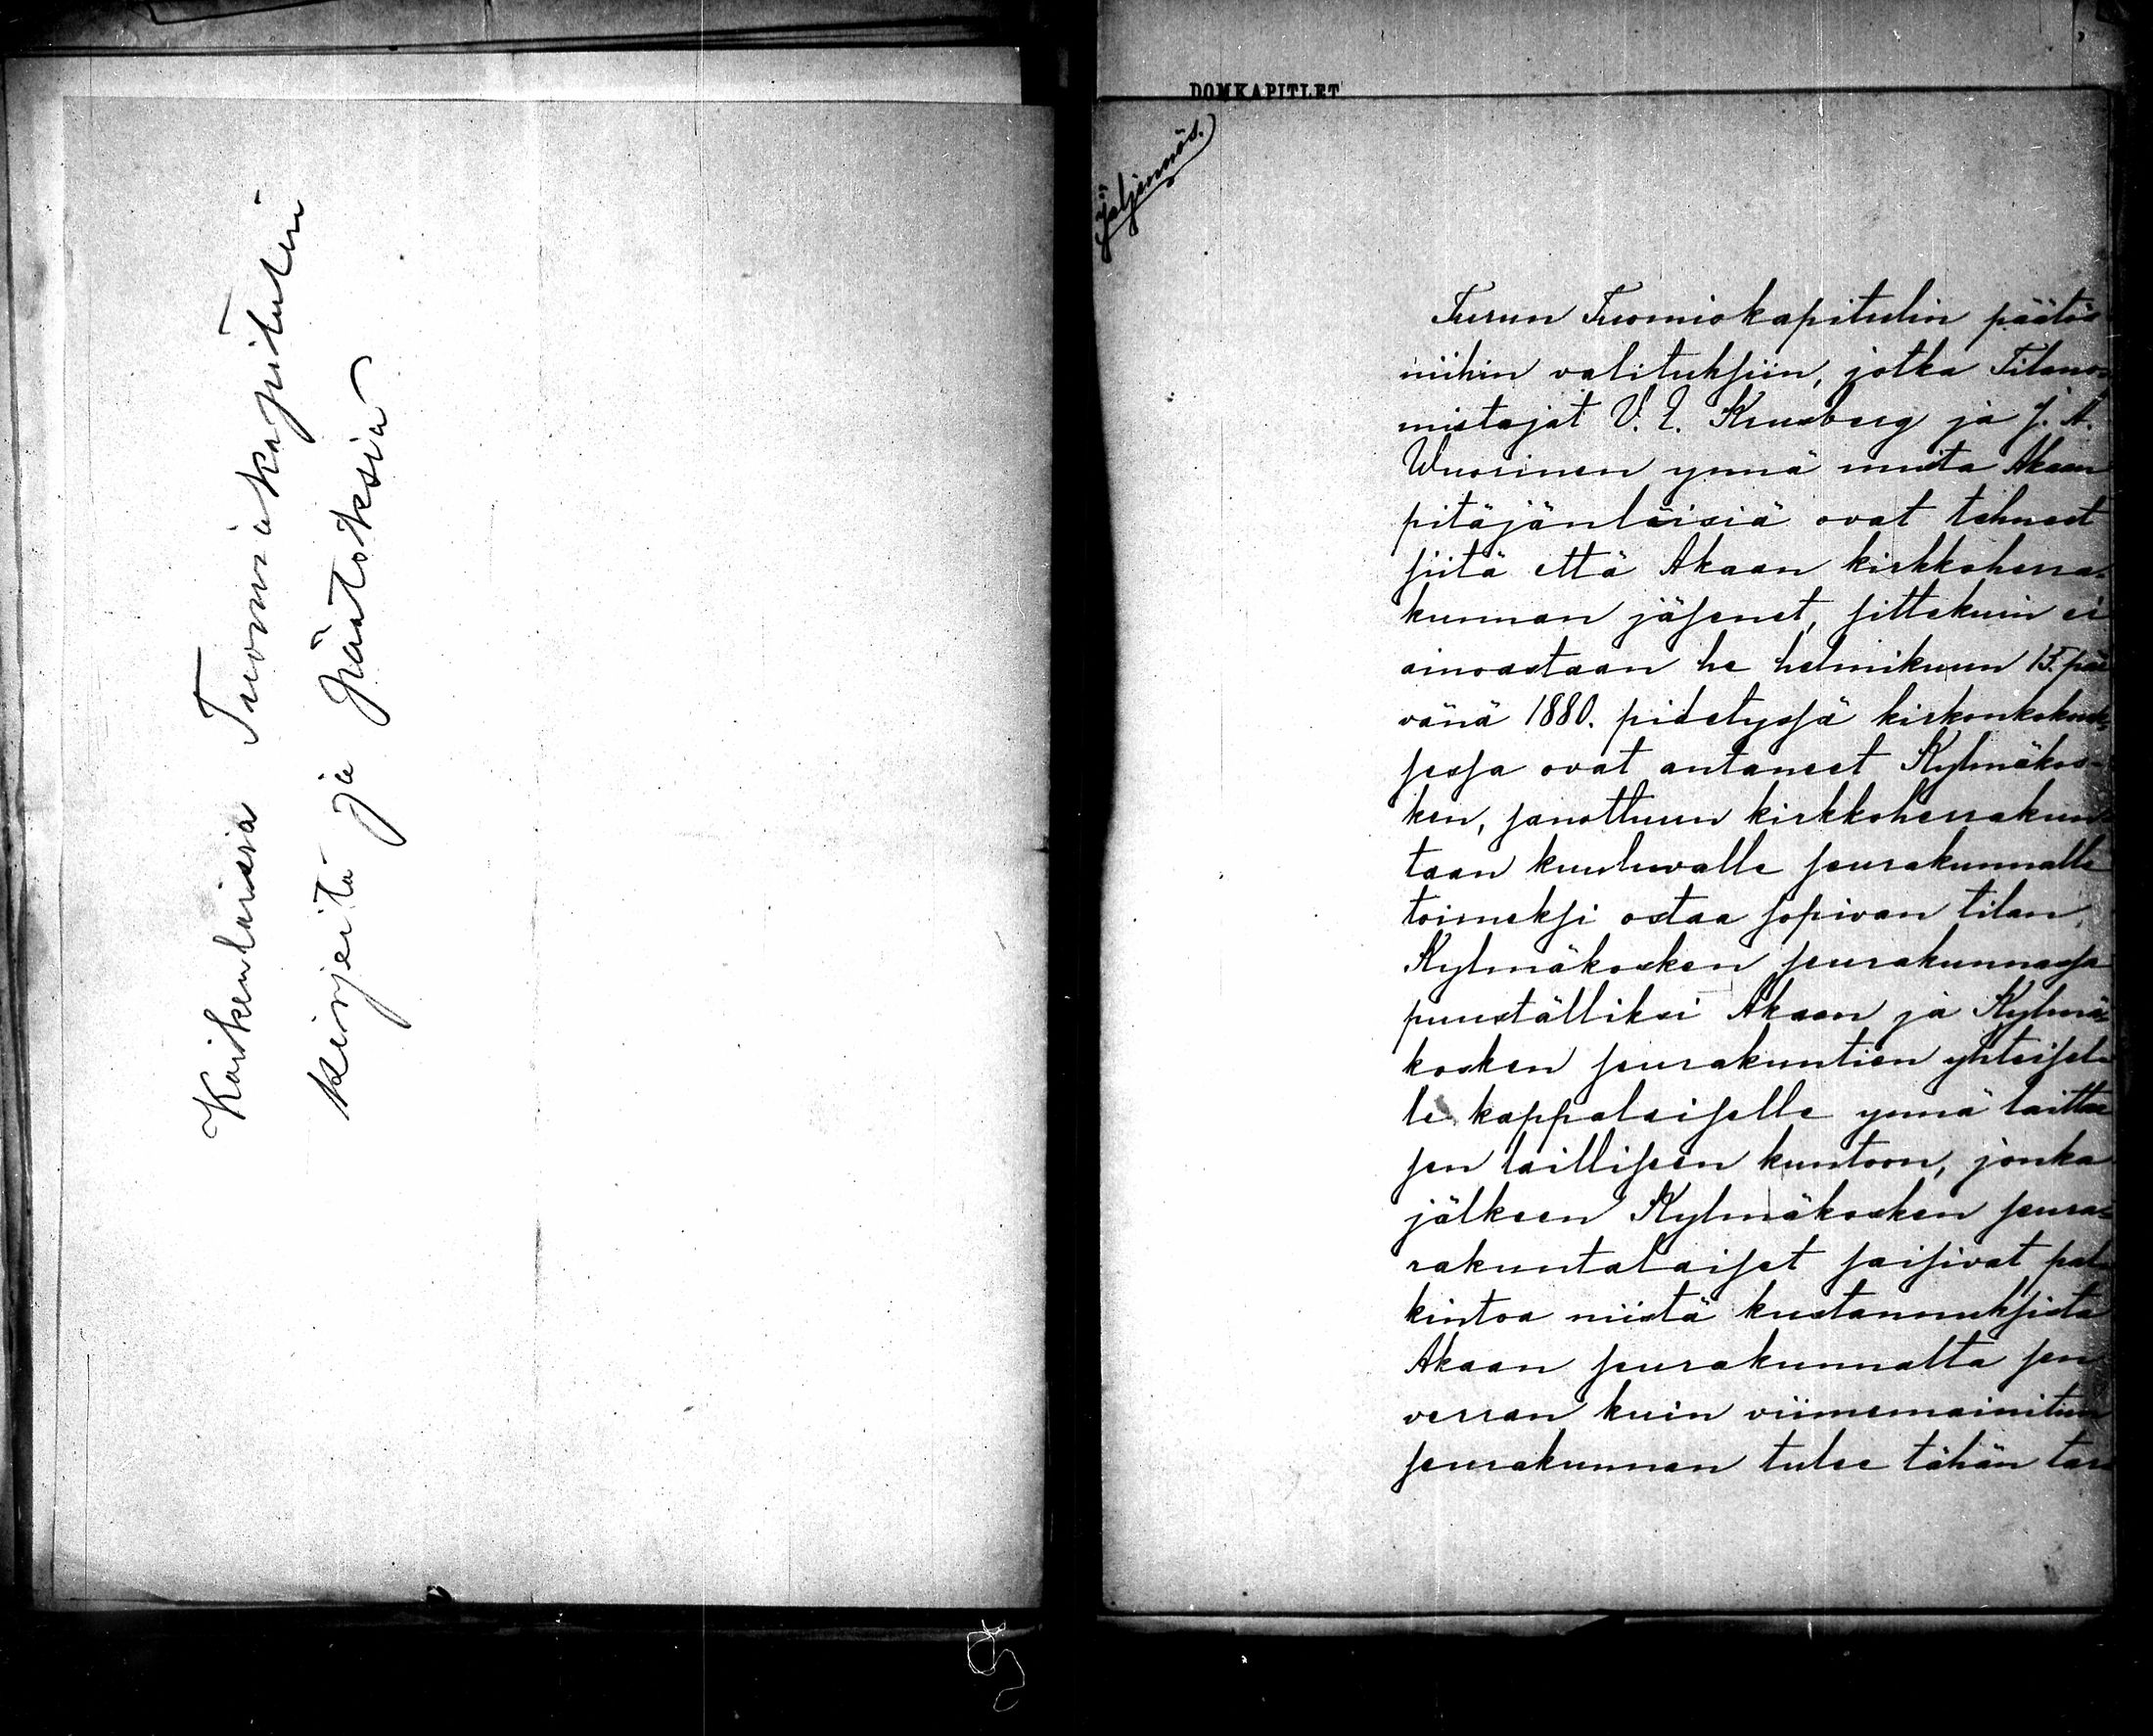 Kaikenlaisia Tuomiokapitulin
kirjeitä ja päätöksiä
DOMKAPITLET
Jäljennös.
Turun Tuomiokapitulin päätös
niihin valituksiin, jotka Tilano-
mistajat V. E. Krusberg ja J. A.
Wuorinen ynnä muita Akaan
pitäjänläisiä ovat tehneet
siitä että Akaan kirkkoherra-
kunnan jäsenet, sittekuin ei
ainoastaan he helmikuun 15. päi
vänä 1880. pidetyssä kirkonkokouk-
sessa ovat antaneet Kylmäkos-
ken, sanottuun kirkkoherrakun-
taan kuuluvalle seurakunnalle
toimeksi ostaa sopivan tilan
Kylmäkosken seurakunnassa
puuställiksi Akaan ja Kylmä-
kosken seurakuntien yhteisel-
le kappalaiselle ynnä laittaa
sen lailliseen kuntoon, jonka
jälkeen Kylmäkosken seura-
rakuntalaiset saisivat pal-
kintoa niistä kustannuksista
Akaan seurakunnalta sen
verran kuin viimemainitun
seurakunnan tulee tähän tar